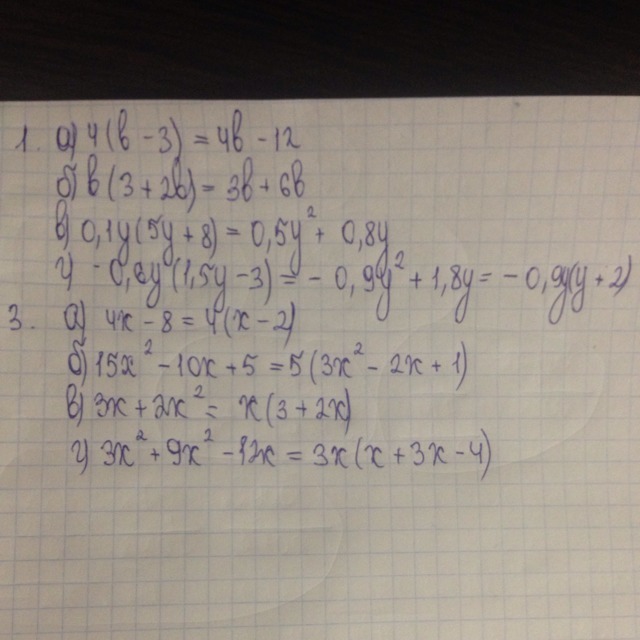 1. а) 4(b - 3) = 4b - 12
б) b(3 + 2b) = 3b + 6b
в) 0,1y(5y + 8) = 0,5y² + 0,8y
г) -0,6y(1,5y - 3) = - 0,9y² + 1,8y = - 0,9y(y + 2)
3. а) 4x - 8 = 4(x - 2)
б) 15x² - 10x + 5 = 5(3x² - 2x + 1)
в) 3x + 2x² = x(3 + 2x)
г) 3x² + 9x² - 12x = 3x(x + 3x - 4)